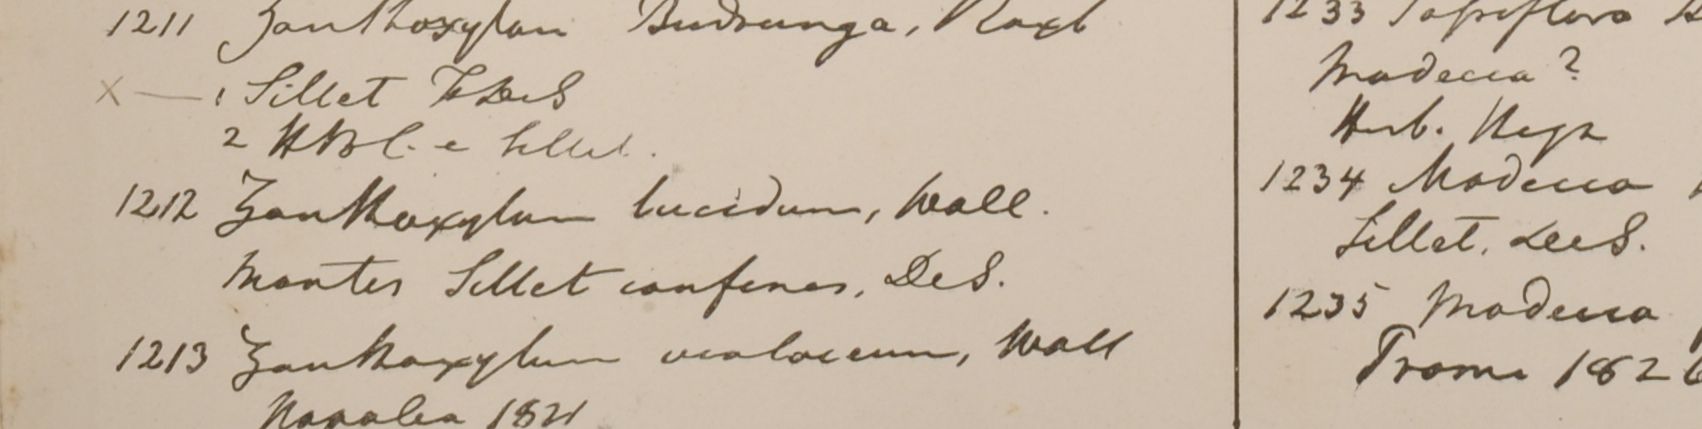 1211 Zanthoxylum Budrunga, Roxb
X — 1 Sillet F DeS
2 HBC. e Sillet.
1212 Zanthoxylum lucidum, Wall.
Montes Sillet confines, DeS.
1213 Zanthoxylum violaceum, Wall
Napalia 1821
1233
Modecca?
Herb. Heyn
1234 Modecca
Sillet. DeS.
1235 Modecca
Prome 1826